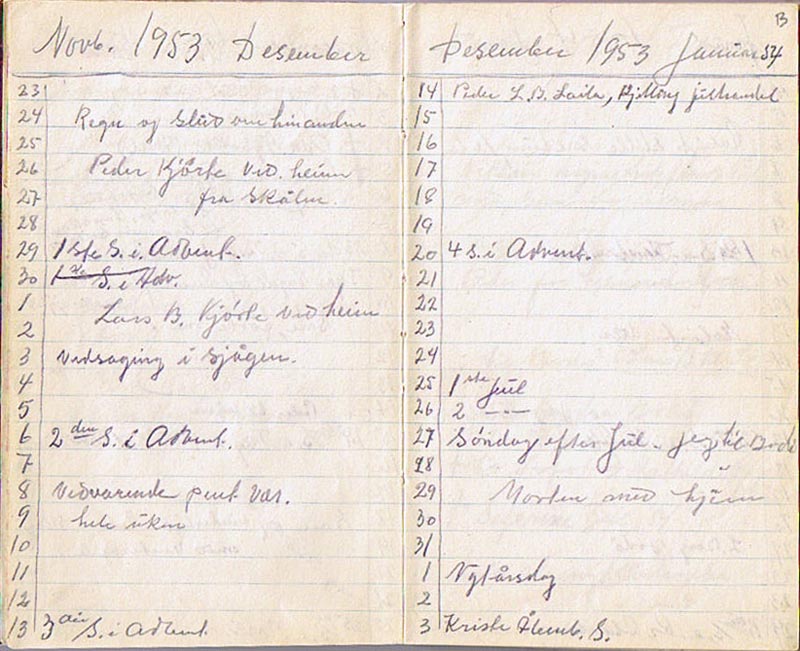 Novb. 1953 Desember
23
24 Regn og Slud om hinanden
25
26 Peder Kjörte ved. heim
27 fra Skålen.
28
29 1ste S. i Advent.
30 1ste S. i Adv.
1 Lars B. Kjörte ved heim
2
3 Vedsaging i Sjågen.
4
5
6 2den S. i Advent.
7
8 Vedvarende pent Vær.
9 hele uken
10
11
12
13 3die S. i Advent
B
Desember 1953 Januar 54
14 Peder L. B. Laila, julhandel
15
16
17
18
19
20 4 S. i Advent.
21
22
23
24
25 1ste Jul
26 2 - - -
27 Söndag efter Jul. jeg til
28
29 Morten med hjem
30
31
1 Nytårsdag
2
3 Kristi Åbenb. S.